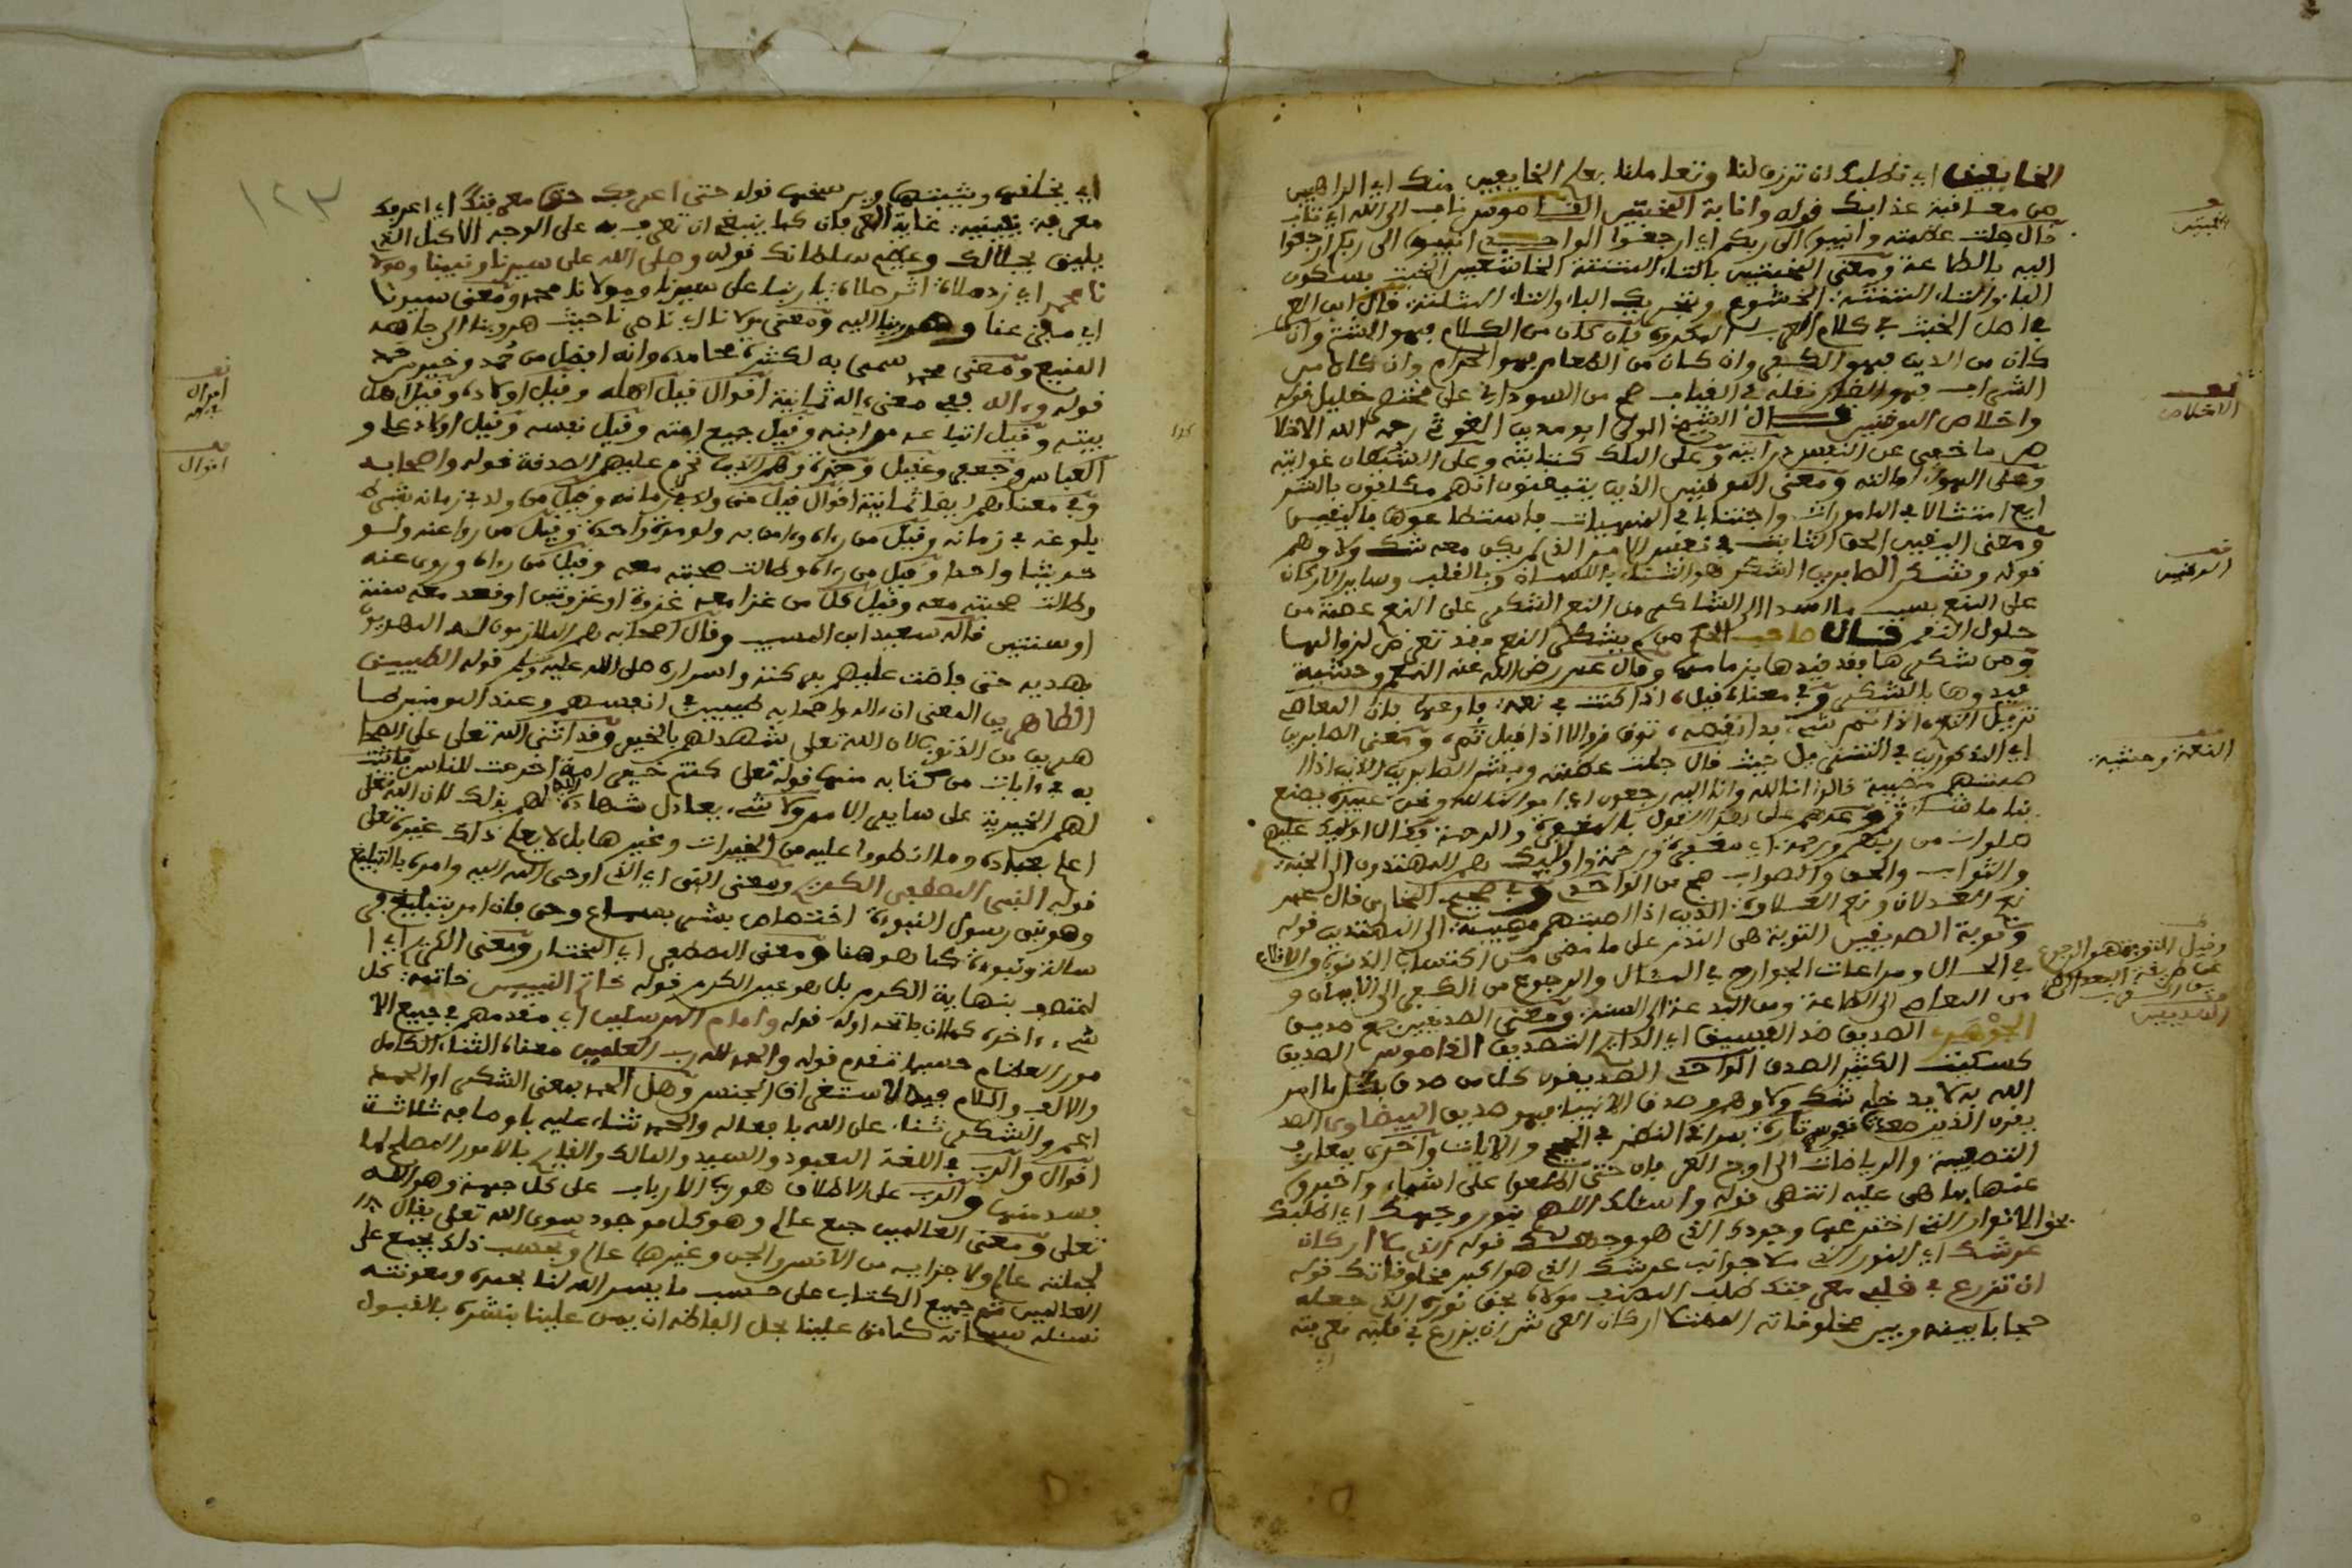 الخايفين اي نطلبك ان ترزق لنا وتعاملنا بعلم الخايفين منك اي الراهبين
من معاقبة عذابك قوله وانابة المخبتين القاموس ناب الى الله اي تاب
قال جلت عظمته وانيبوا الى ربكم اي ارجعوا الواحدي انيبوا الى ربكم ارجعوا
اليه بالطاعة ومعنى المخبتين بالتاء المثناة الخاشعين الخبت بسكون
الباء والتاء المثناة الخشوع وبتحريك الباء والثاء المثلثة قال ابن العر
بي اصل الخبث في كلام العرب المكروه فان كان من الكلام فهو الشتم وان
كان من الدين فهو الكفر وان كان من الطعام فهو الحرام وان كان من
الشراب فهو الضار نقله في العباب صح من السوداني على مختصر خليل قوله
واخلاص الموقنين قال الشيخ الولي ابو مدين الغوث رحمه الله الاخلا
ص ما خفي عن النفس درايته وعلى الملك كتابته وعلى الشيطان غوايته
وعلى الهوى امالته ومعنى الموقنين الذين يتيقنون انهم مكلفون بالشر
ايع امتثالا في المامورات واجتنابا في المنهيات ما استطاعوها باليقين
ومعنى اليقين الحق الثابت في نفس الامر الذي لم يكن معه شك ولا وهم
قوله وشكر الصابرين الشكر هو الثناء باللسان وبالقلب وساير الاركان
على النعم بسبب ما اسدا الى الشاكر من النعم الشكر على النعم عصمة من
حلول النقم قال صاحب الحكم من لم يشكر النعم فقد تعرض لزوالها
ومن شكرها فقد قيدها بزمامها وقال عمر رضي الله عنه النعم وحشية
قيدوها بالشكر وفي معناه قيل اذا كنت في نعمة فارعها فان المعاصي
تزيل النعم اذا تم شيء بدا نقصه توق زوالا اذا قيل تم ومعنى الصابرين
اي المذكورين في التنزيل حيث قال جلت عظمته وبشر الصابرين الذين اذا ا
صبتهم مصيبة قالوا انا لله وانا اليه راجعون اي اموالنا لله ونحن عبيده يصنع
بنا ما شاء ثم وعدهم على هذا القول بالمغفرة والرحمة فقال اولئك عليهم
صلوات من ربهم ورحمة اي مغفرة ورحمة واولئك هم المهتدون الى الجنة
والثواب والحق والصواب صح من الواحدي وفي صحيح البخاري قال عمر
نعم العدلان ونعم العلاوة الذين اذا اصبتهم مصيبة الى المهتدين قوله
وتوبة الصديقين التوبة هي الندم على ما مضى من اكتساب الذنوب والاقلاع
في الحال ومراعات الجوارح في المثال والرجوع من الكفر الى الايمان و
من المعاصي الى الطاعة ومن البدعة الى السنة ومعنى الصديقين جمع صديق
الجوهري الصديق مثل الفسيق اي الدايم التصديق القاموس الصديق
كسكيت الكثير الصدق الواحدي الصديقون كل من صدق بكل ما امر
الله به لا يدخله شك ولا وهم وصدق الانبياء فهو صديق البيضاوي الصد
يقون الذين صعدت نفوسهم تارة بمراقي النظر في الحجج والايات واخرى بمعارج
التصفية والرياضات الى اوج العرفان حتى اطلعوا على اشياء واخبروا
عنها بما هي عليه انتهى قوله واسئلك اللهم بنور وجهك اي اطلبك
بحق الانوار التي اخترعها وجودك الذي هو وجهك قوله الذي ملا اركان
عرشك اي النور الذي ملا جوانب عرشك الذي هو اكبر مخلوقاتك قوله
ان تزرع في قلبي معرفتك طلب المصنف مولاه بحق نوره الذي جعله
حجابا بينه وبين مخلوقاته الممتلا اركان العرش ان يزرع في قلبه معرفته
قف
المخبتين
قف
الاخلاص
قف
اليقين
قف
النعمة وحشية
وقيل التوبة هو الرجوع
عن طريقة البعد الى
طريق القرب
الصديقين
اي يخلقها ويثبتها ويرسخها قوله حتى اعرفك حق معرفتك اي اعرفك
معرفة يقينية غاية العرفان كما ينبغي ان تعرف به على الوجه الاكمل الذي
يليق بجلالك وعظيم سلطانك قوله وصلى الله على سيدنا ونبينا ومولا
نا محمد اي زد صلاة اثر صلاة يا ربنا على سيدنا ومولانا محمد ومعنى سيدنا
اي مفزعنا ومهربنا اليه ومعنى مولانا اي ناصرنا حيث هربنا الى جاهه
المنيع ومعنى محمد سمي به لكثرة محامده وانه افضل من حُمد وخير من حمد
قوله وءاله ففي معنى ءاله ثمانية اقوال قيل اهله وقيل اولاده وقيل اهل
بيته وقيل اتباعه من امته وقيل جميع امته وقيل نفسه وقيل اولاد علي و
العباس وجعفر وعقيل وحمزة وهم الذين تحرم عليهم الصدقة قوله واصحابه
وفي معناهم ايضا ثمانية اقوال قيل من ولد في زمانه وقيل من ولد في زمانه بشرط
بلوغه في زمانه وقيل من رءاه وءامن به ولو مرة واحدة وقيل من روا عنه ولو
حديثا واحدا وقيل من رءاه وطالت صحبته معه وقيل من رءاه وروى عنه
وطالت صحبته معه وقيل كل من غزا معه غزوة او غزوتين او قعد معه سنة
او سنتين قاله سعيد ابن المسيب وقال اصحابه هم الملازمون له المهديون
بهديه حتى فاضت عليهم بركته واسراره صلى الله عليه وسلم قوله الطيبين
الطاهرين المعنى ان ءاله واصحابه طيبين في انفسهم وعند المومنين طا
هرين من الذنوب لان الله تعلى شهد لهم بالخير وقد اثنى الله تعلى على الصحا
به في ءايات من كتابه منها قوله تعلى كنتم خير امة اخرجت للناس فاثبت
لهم الخيرية على ساير الامم ولا شيء يعادل شهادة الله لهم بذلك لان الله تعلى
اعلم بعباده وما انطووا عليه من الخيرات وغيرها بل لا يعلم ذلك غيره تعلى
قوله النبي المصطفى الكريم ومعنى النبي اي الذي اوحى الله اليه وامره بالتبليغ
وهو نبي رسول النبوة اختصاص بشر بسماع وحي فان امر بتبليغ فر
سالة ونبوة كما هو هنا ومعنى المصطفى اي المختار ومعنى الكريم اي ا
لمتصف بنهاية الكرم بل هو عين الكرم قوله خاتم النبيين خاتمة كل
شيء ءاخره كما ان فاتحه اوله قوله وامام المرسلين اي مقدمهم في جميع الا
مور العظام حسبما تقدم قوله والحمد لله رب العلمين معناه الثناء الكامل
والالف واللام فيه لاستغراق الجنس وهل الحمد بمعنى الشكر او الحمد
اعم والشكر ثناء على الله بافعاله والحمد ثناء عليه باوصافه ثلاثة
اقوال والرب في اللغة المعبود والسيد والمالك والقايم بالامور المصلح لما
يفسد منها والرب على الاطلاق هو رب الارباب على كل جهة وهو الله
تعلى ومعنى العالمين جمع عالم وهو كل موجود سوى الله تعلى يقال
لجملته عالم ولاجزايه من الانس والجن وغيرها عالم وبحسب ذلك يجمع على
العالمين تم جميع الكتاب على حسب ما يسر الله لنا بحمده ومعونته
نسئله سبحانه كما من علينا بحل الفاظه ان يمن علينا بنشره بالقبول
١٢٣
قف
اقوال
في ءاله
قف
اقوال